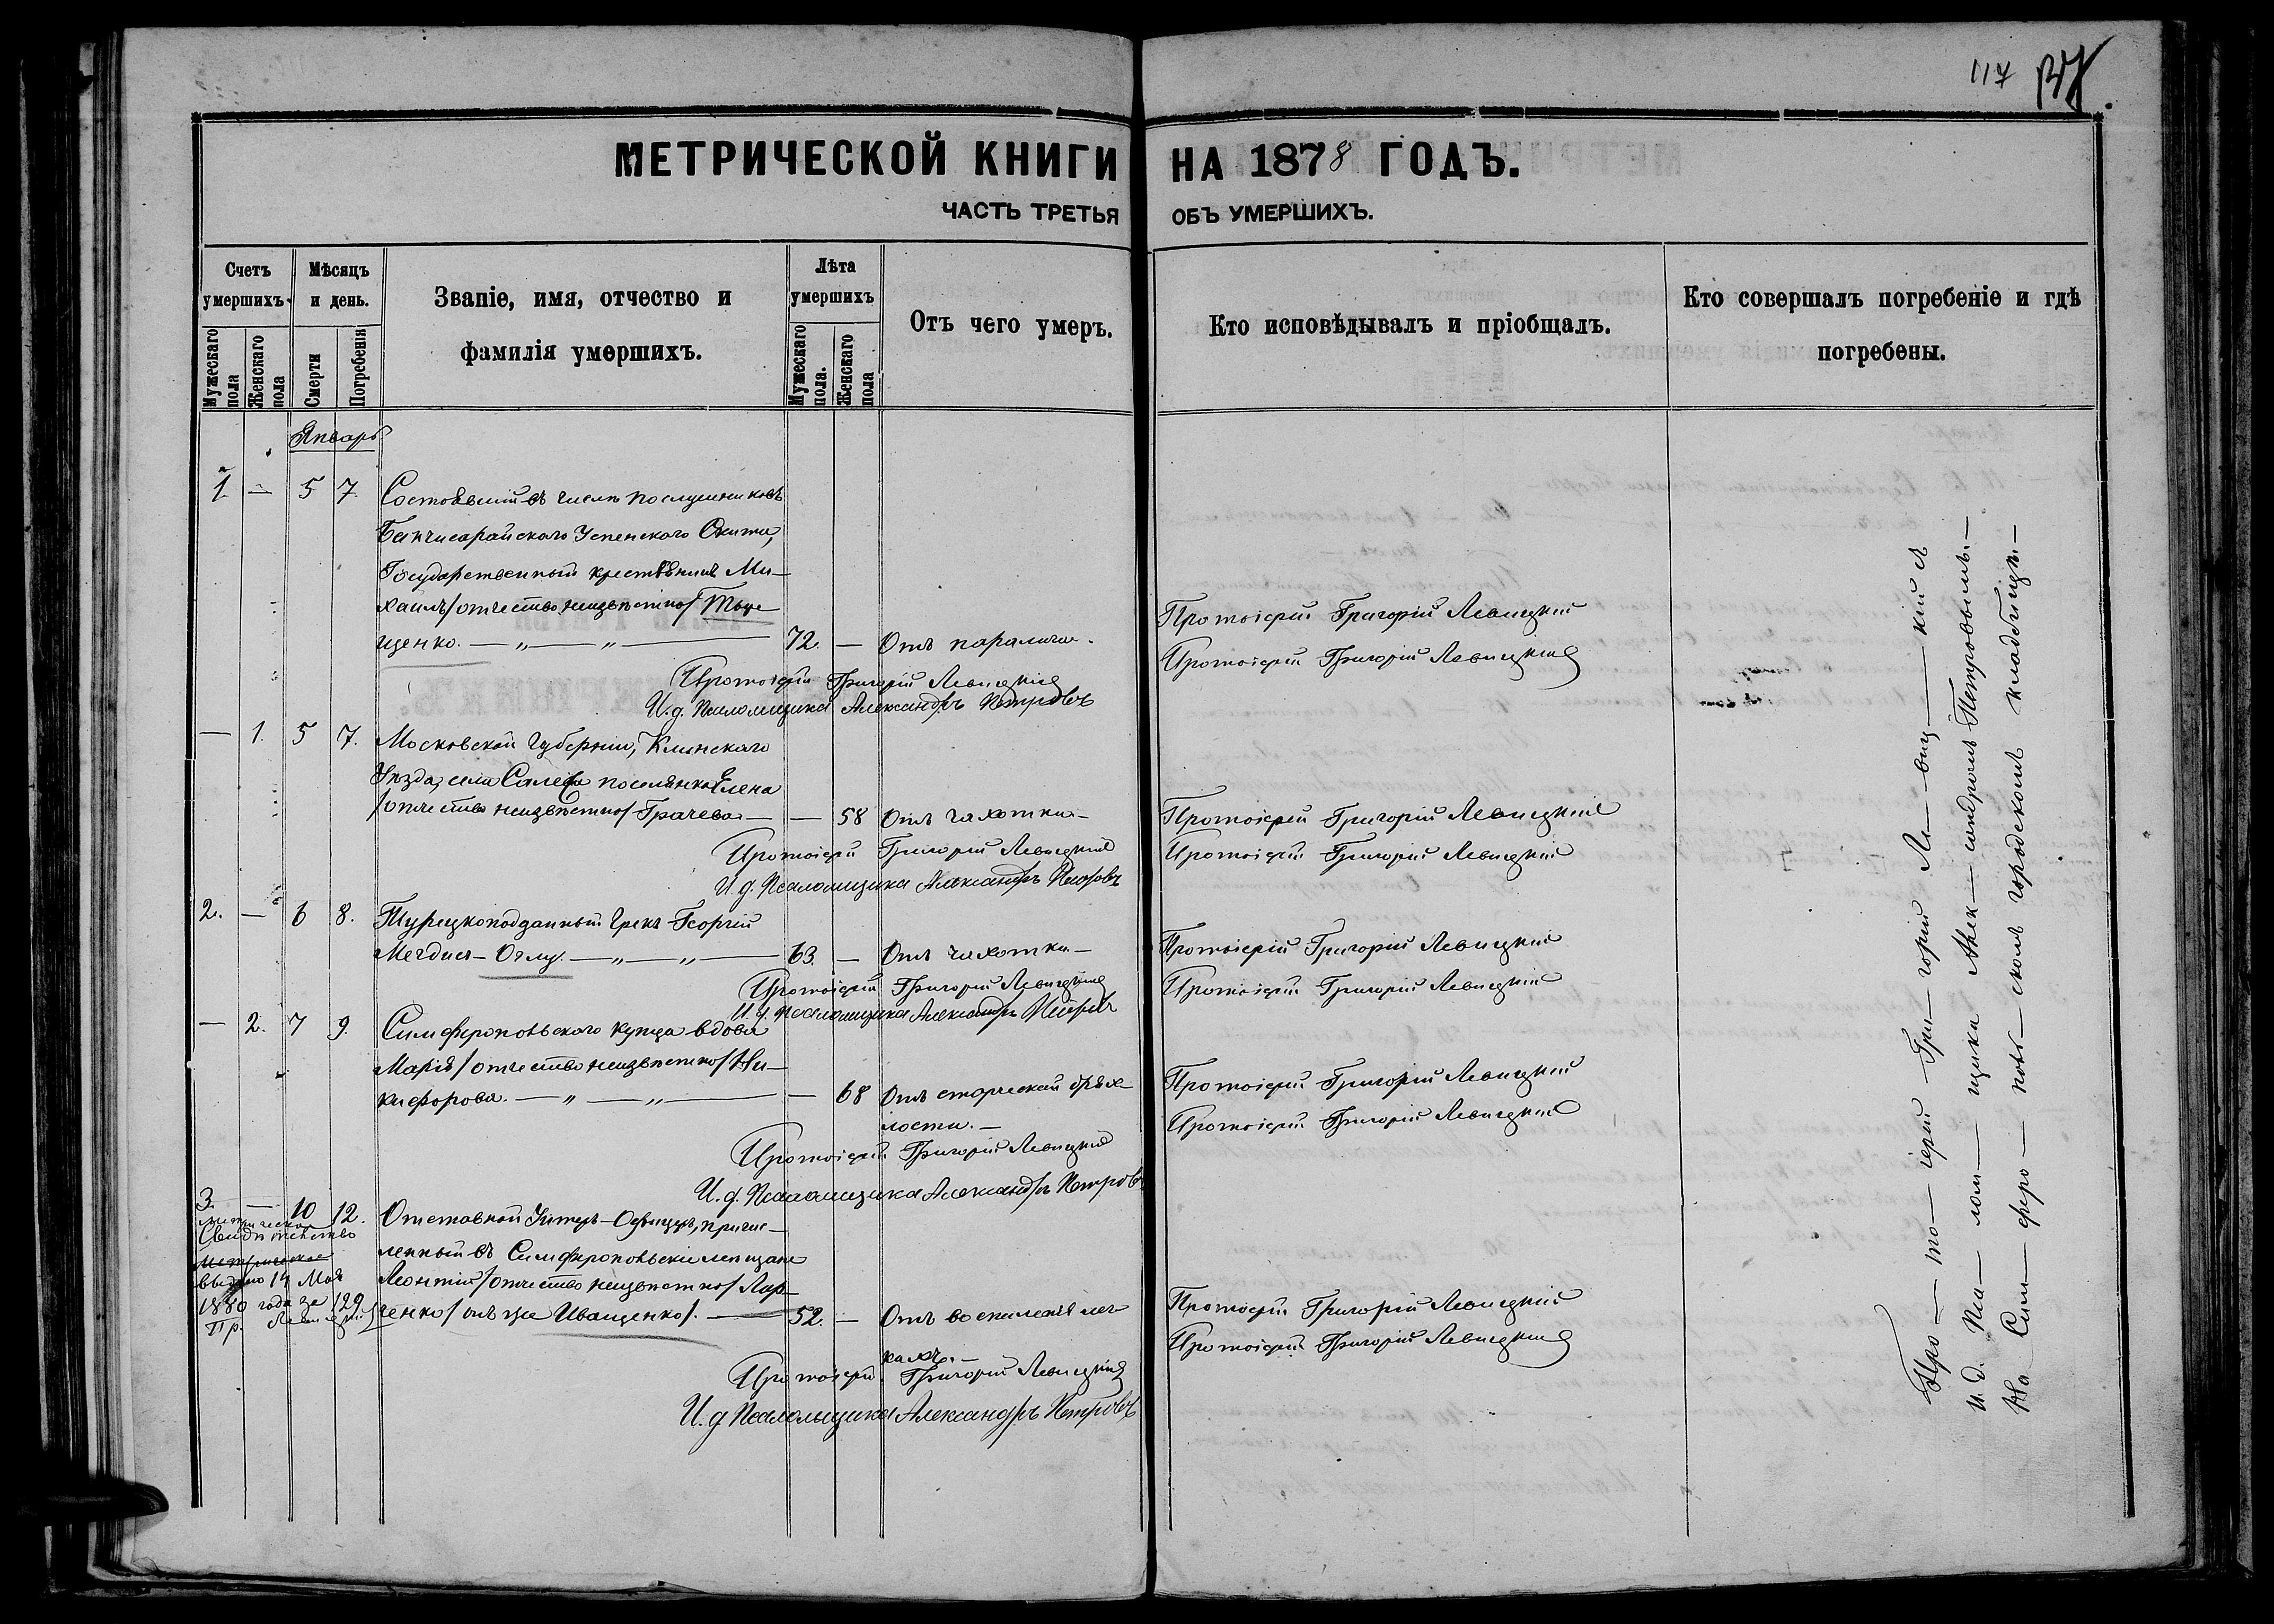 117
МЕТРИЧЕСКОЙ КНИГИ НА 1878 ГОДЪ.
ЧАСТЬ ТРЕТЬЯ ОБЪ УМЕРШИХЪ.
Счетъ умершихъ.
Мужескаго пола
Женскаго пола
Мѣсяцъ и день.
Смерти
Погребенія
Званіе, имя, отчество и
фамилія умершихъ.
Лѣта умершихъ
Мужескаго пола.
Женскаго пола
Отъ чего умеръ.
Кто исповѣдывалъ и пріобщалъ.
Кто совершалъ погребеніе и гдѣ
погребены.
Январь
1 — 5 7. Состоявшій въ числѣ послушниковъ
Бахчисарайскаго Успенскаго Скита,
Государственный крестьянинъ Ми-
хаилъ /отчество неизвѣстно/
щенко. — „ — „ — 72. — Отъ паралича.
Протоіерей Григорій Левицкій
Протоіерей Григорій Левицкій
Протоіерей Григорій Левицкій
И. д. Псаломщика Александръ Петровъ
— 1. 5 7. Московской Губерніи, Клинскаго
Уѣзда, села поселянка Елена
/отчество неизвѣстно/ Грачева — — 58 Отъ чахотки —
Протоіерей Григорій Левицкій
Протоіерей Григорій Левицкій
Протоіерей Григорій Левицкій
И. д. Псаломщика Александръ Петровъ
2. — 6 8. Турецкоподданный Грекъ Георгій
Мегдис-Оглу. — „ — „ — 63. — Отъ чахотки —
Протоіерей Григорій Левицкій
Протоіерей Григорій Левицкій
Протоіерей Григорій Левицкій
И. д. Псаломщика Александръ Петровъ
— 2. 7 9. Симферопольскаго купца вдова
Марія /отчество неизвѣстно/ Ни-
кифорова. — „ — „ — — 68 Отъ старческой дрях-
лости. —
Протоіерей Григорій Левицкій
Протоіерей Григорій Левицкій
Протоіерей Григорій Левицкій
И. д. Псаломщика Александръ Петровъ
3. — 10 12. Отставной Унтеръ-Офицеръ, причис-
ленный въ Симферопольскіе мещане
Леонтій /отчество неизвѣстно/ Лар-
ченко /онъ же Иващенко/. — 52. — Отъ воспаленія лег-
кихъ. —
Метрическое
Свидѣтельство
Метрическое
выдано 14 Мая
1880 года за 129.
Пр. Левицкій
Протоіерей Григорій Левицкій
Протоіерей Григорій Левицкій
Протоіерей Григорій Левицкій
И. д. Псаломщика Александръ Петровъ
Про — то — іерей Гри — горій Ле — виц — кій съ
и. д. Пса — лом — щика Алек — сандромъ Петровымъ. —
На Сим — феро — поль — скомъ городскомъ кладбищѣ. —